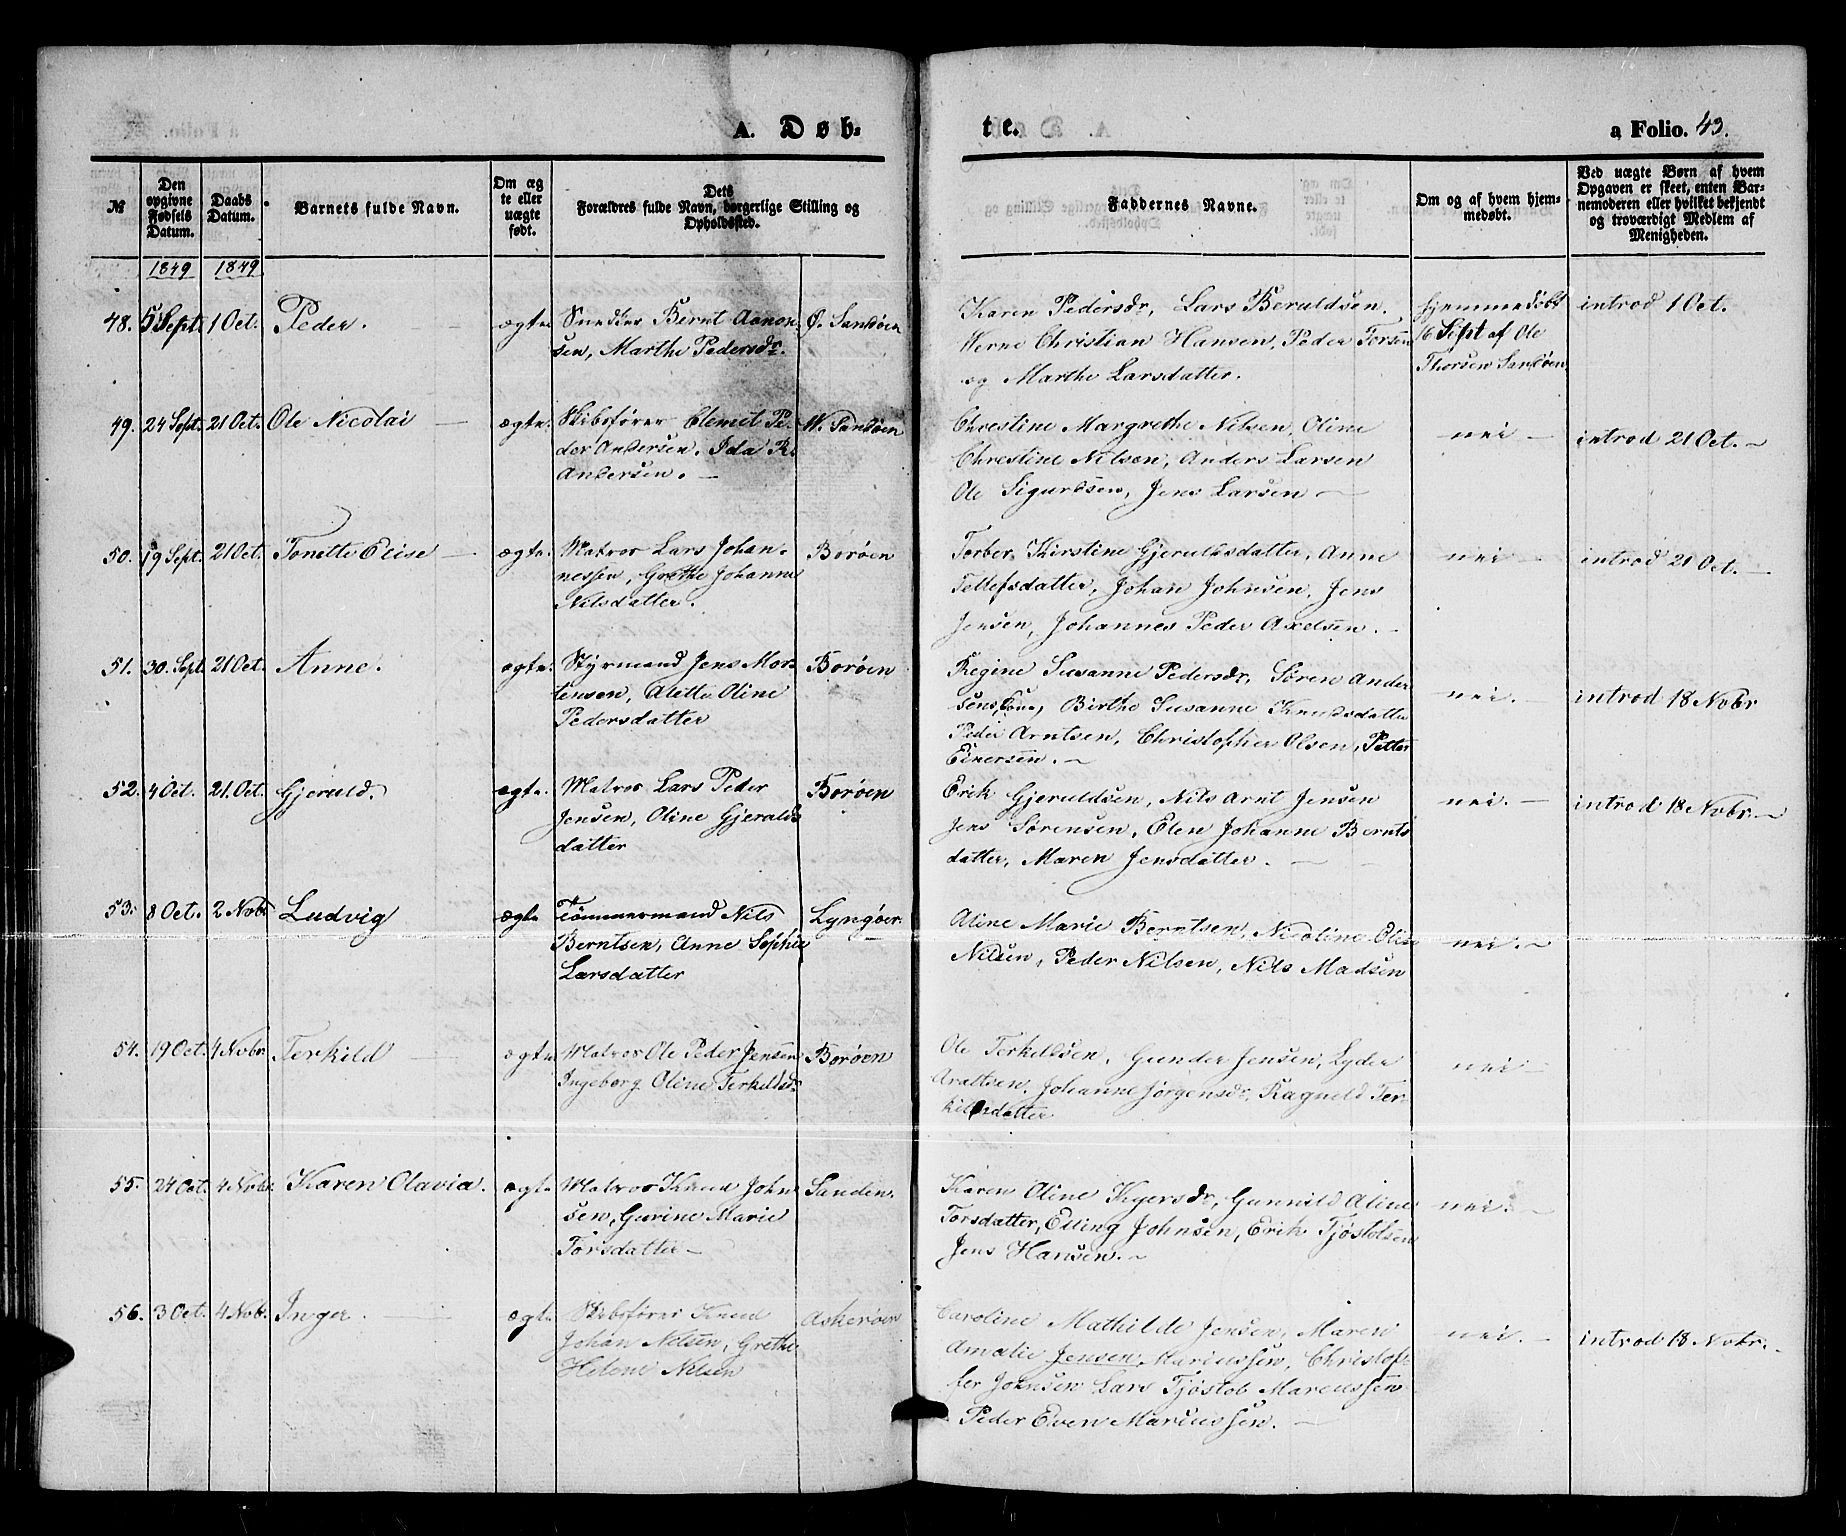 A. Døb-
te.
a Folio. 43.
№
Den opgivne Fødsels Datum.
Daabs Datum.
Barnets fulde Navn.
Om ægte eller uægte født.
Dets Forældres fulde Navn, borgerlige Stilling og Opholdssted.
Faddernes Navne.
Om og af hvem hjemmedøbt.
Ved uægte Børn af hvem Opgaven er skeet, enten Barnemoderen eller hvilket bekjendt og troværdigt Medlem af Menigheden.
1849 1849
48. 5 Sept. 1 Oct. Peder. ægte Snedker Bernt Aanon- Ø. Sandøen
sen, Marthe Pedersdr.
Karen Pedersdr, Lars Beruldsen.
Werne Christian Hansen, Peder Torsen
og Marthe Larsdatter.
hjemmedøbt
16 Sept af Ole
Thorsen Sandøen
introd 1 Oct.
49. 24 Sept. 21 Oct. Ole Nicolai ægte. Skibsfører Clemet Pe- W. Sandøen
der Andersen. Ida R.
Andersen. —
Christine Margrethe Nilsen, Oline
Chrestine Nilsen, Anders Larsen
Ole Sigurdsen, Jens Larsen —
nei —
introd 21 Oct. —
50. 19 Sept. 21 Oct. Tonette Elise — ægte. Matros Lars Johan- Borøen
nessen, Grethe Johanne
Nilsdatter.
Terber Kirstine Gjeruldsdatter, Anne
Tellefsdatter, Johan Johnsen, Jens
Jensen, Johannes Peder Axelsen. —
nei —
introd 21 Oct. —
51. 30. Sept. 21 Oct. Anne. ægte. Styrmand Jens Mor- Borøen
tensen, Alette Oline
Pedersdatter
Regine Susanne Pedersdr, Søren Ander
sens Kone, Birthe Susanne Knudsdatter
Peder Arntsen, Christopher Olsen, Petter
Einersen. —
nei. —
introd 18 Nobr
52. 4 Oct. 21. Oct. Gjeruld. ægte. Matros Lars Peder Borøen
Jensen, Oline Gjerulds
datter
Erik Gjeruldsen, Nils Arnt Jensen
Jens Sørensen, Elen Johanne Bernts
datter, Maren Jensdatter. —
nei. —
introd 18 Nobr. —
53. 8 Oct. 2 Nobr Ludvig ægte Tömmermand Nils Lyngøer.
Berntsen, Anne Sophie
Larsdatter
Aline Marie Berntsen, Nicoline Oline
Nilsen, Peder Nilsen, Nils Madsen
nei. —
54. 19 Oct. 4 Nobr. Terkild ægte Matros Ole Peder Jensen Borøen
Ingeborg Oline Terkildsd.
Ole Terkildsen, Gunder Jensen, Lyder
Arntsen, Johanne Jørgensdr, Ragnild Ter-
kildsdatter
nei —
55. 24 Oct. 4 Nobr. Karen Olavia. ægte Matros Knud John Sanden.
sen, Gurine Marie
Torsdatter —
Karen Oline Kyersdr, Gunnild Aline
Torsdatter, Elling Johnsen, Erik Tjøstolsen
Jens Hansen. —
nei. —
56. 3 Oct. 4 Nobr. Inger. — ægte Skibsfører Knud Askerøen
Johan Nilsen, Grethe
Helene Nilsen
Caroline Mathilde Jensen, Maren
Amalie Jensen, Marcussen, Christof-
fer Johnsen Lars Tjøstob Marcussen
Peder Even Marcussen. —
nei. —
introd 18 Nobr. —